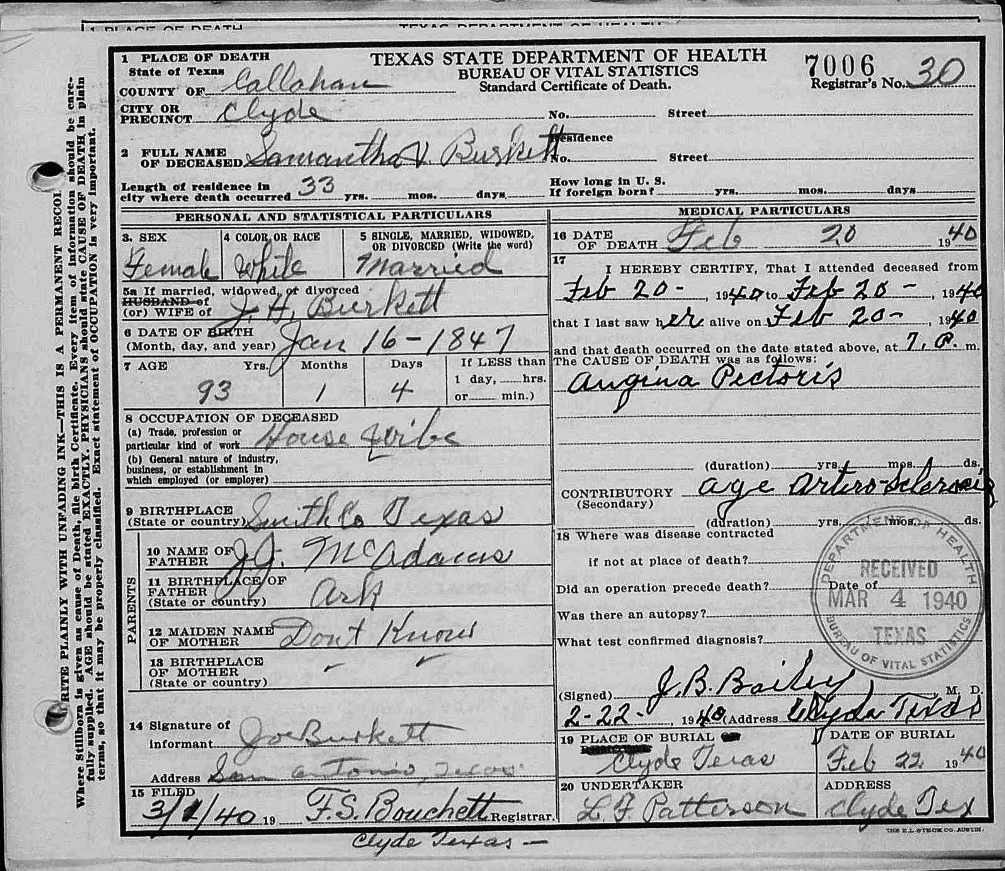 1 PLACE OF DEATH
TEXAS DEPARTMENT OF HEALTH
1 PLACE OF DEATH
State of Texas
COUNTY OF Callahan
CITY OR
PRECINCT Clyde
TEXAS STATE DEPARTMENT OF HEALTH
BUREAU OF VITAL STATISTICS
Standard Certificate of Death.
7006
Registrar's No. 30
No. Street
2 FULL NAME
OF DECEASED Samantha V. Burkett
Residence
No. Street
Length of residence in
city where death occurred 33 yrs. mos. days
How long in U. S.
If foreign born? yrs. mos. days
PERSONAL AND STATISTICAL PARTICULARS
3. SEX
Female
4 COLOR OR RACE
White
5 SINGLE, MARRIED, WIDOWED,
OR DIVORCED (Write the word)
Married
5a If married, widowed, or divorced
HUSBAND of
(or) WIFE of J. H. Burkett
6 DATE OF BIRTH
(Month, day, and year) Jan 16-1847
7 AGE Yrs. Months Days If LESS than
1 day, hrs.
or min.)
93 1 4
8 OCCUPATION OF DECEASED
(a) Trade, profession or
particular kind of work House Wife
(b) General nature of industry,
business, or establishment in
which employed (or employer)
9 BIRTHPLACE
(State or country) Smith Co Texas
PARENTS
10 NAME OF
FATHER J. J. McAdams
11 BIRTHPLACE OF
FATHER
(State or country) Ark
12 MAIDEN NAME
OF MOTHER Dont Know
13 BIRTHPLACE
OF MOTHER
(State or country)
14 Signature of
informant Joe Burkett
Address San Antonio, Texas
15 FILED
3/1/40 19 F. S. Bouchett Registrar.
Clyde Texas -
MEDICAL PARTICULARS
16 DATE
OF DEATH Feb 20 1940
17
I HEREBY CERTIFY, That I attended deceased from
Feb 20-, 1940 to Feb 20-, 1940
that I last saw her alive on Feb 20-, 1940
and that death occurred on the date stated above, at 7, P. m.
The CAUSE OF DEATH was as follows:
Angina Pectoris
(duration) yrs. mos. ds.
CONTRIBUTORY age Artero-Sclerosis
(Secondary)
(duration) yrs. mos. ds.
18 Where was disease contracted
if not at place of death?
Did an operation precede death? Date of
Was there an autopsy?
What test confirmed diagnosis?
DEPARTMENT OF HEALTH
RECEIVED
MAR 4 1940
TEXAS
BUREAU OF VITAL STATISTICS
(Signed) J. B. Bailey M. D.
2-22- 1940 (Address Clyde Texas
19 PLACE OF BURIAL
Clyde Texas
DATE OF BURIAL
Feb 22 1940
20 UNDERTAKER
L. F. Patterson
ADDRESS
Clyde Tex
THE E.L. STECK CO. AUSTIN.
WRITE PLAINLY WITH UNFADING INK—THIS IS A PERMANENT RECOR
Where Stillborn is given as cause of Death, file birth Certificate. Every item of information should be care-
fully supplied. AGE should be stated EXACTLY. PHYSICIANS should state CAUSE OF DEATH in plain
terms, so that it may be properly classified. Exact statement of OCCUPATION is very important.